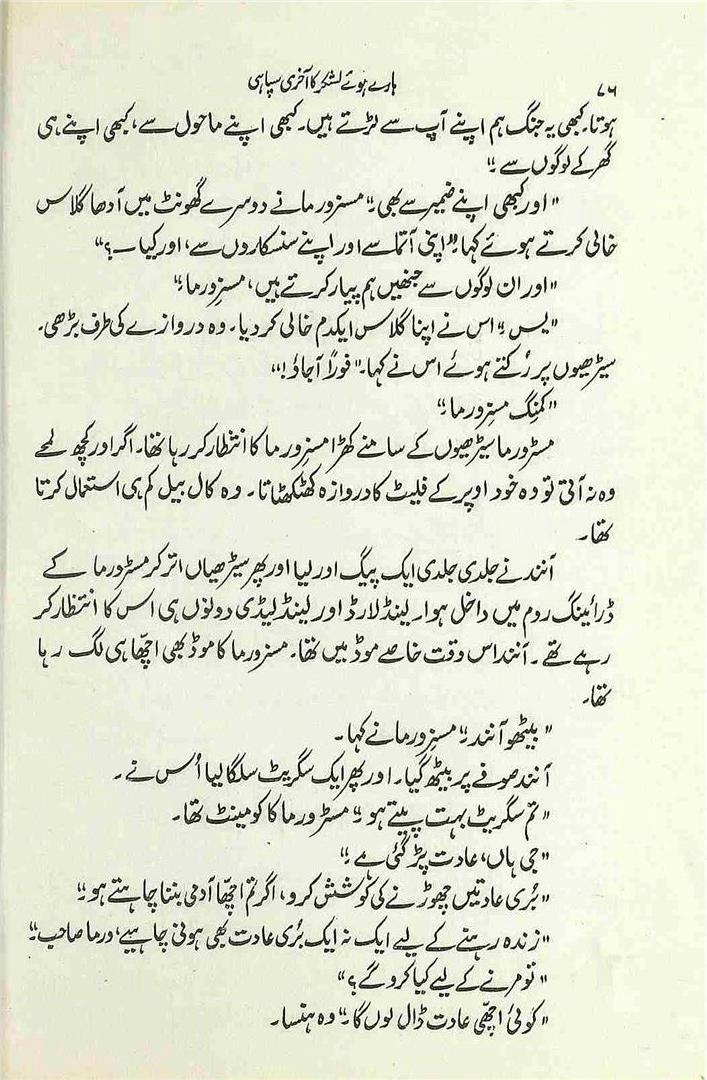 ۷۶
ہارے ہوئے لشکر کا آخری سپاہی
ہوتا۔ کبھی یہ جنگ ہم اپنے آپ سے لڑتے ہیں۔ کبھی اپنے ماحول سے، کبھی اپنے ہی
گھر کے لوگوں سے ۔"
"اور کبھی اپنے ضمیر سے بھی۔" مسز ورما نے دوسرے گھونٹ میں آدھا گلاس
خالی کرتے ہوئے کہا۔ "اپنی آتما سے اور اپنے سنسکاروں سے، اور کیا ۔ ؟"
"اور ان لوگوں سے جنھیں ہم پیار کرتے ہیں، مسز ورما۔"
"یس ۔" اس نے اپنا گلاس ایکدم خالی کر دیا۔ وہ دروازے کی طرف بڑھی۔
سیڑھیوں پر رُکتے ہوئے اس نے کہا۔ "فوراً آجاؤ!"
"کمِنگ مسز ورما۔"
مسٹر ورما سیڑھیوں کے سامنے کھڑا مسز ورما کا انتظار کر رہا تھا۔ اگر اور کچھ لمحے
وہ نہ آتی تو وہ خود اوپر کے فلیٹ کا دروازہ کھٹکھٹاتا۔ وہ کال بیل کم ہی استعمال کرتا
تھا۔
آنند نے جلدی جلدی ایک پیگ اور لیا اور پھر سیڑھیاں اتر کر مسٹر ورما کے
ڈرائینگ روم میں داخل ہوا۔ لینڈ لارڈ اور لینڈ لیڈی دونوں ہی اس کا انتظار کر
رہے تھے ۔ آنند اس وقت خاصے موڈ میں تھا۔ مسز ورما کا موڈ بھی اچھّا ہی لگ رہا
تھا۔
"بیٹھو آنند۔" مسز ورما نے کہا۔
آنند صوفے پر بیٹھ گیا۔ اور پھر ایک سگریٹ سلگا لیا اُس نے ۔
"تم سگریٹ بہت پیتے ہو ۔" مسٹر ورما کا کومینٹ تھا۔
"جی ہاں، عادت پڑ گئی ہے ۔"
"بُری عادتیں چھوڑنے کی کوشش کرو، اگر تم اچھّا آدمی بننا چاہتے ہو ۔"
"زندہ رہنے کے لیے ایک نہ ایک بُری عادت بھی ہونی چاہیے، ورما صاحب۔"
"تو مرنے کے لیے کیا کرو گے ؟"
"کوئی اچھّی عادت ڈال لوں گا۔" وہ ہنسا۔